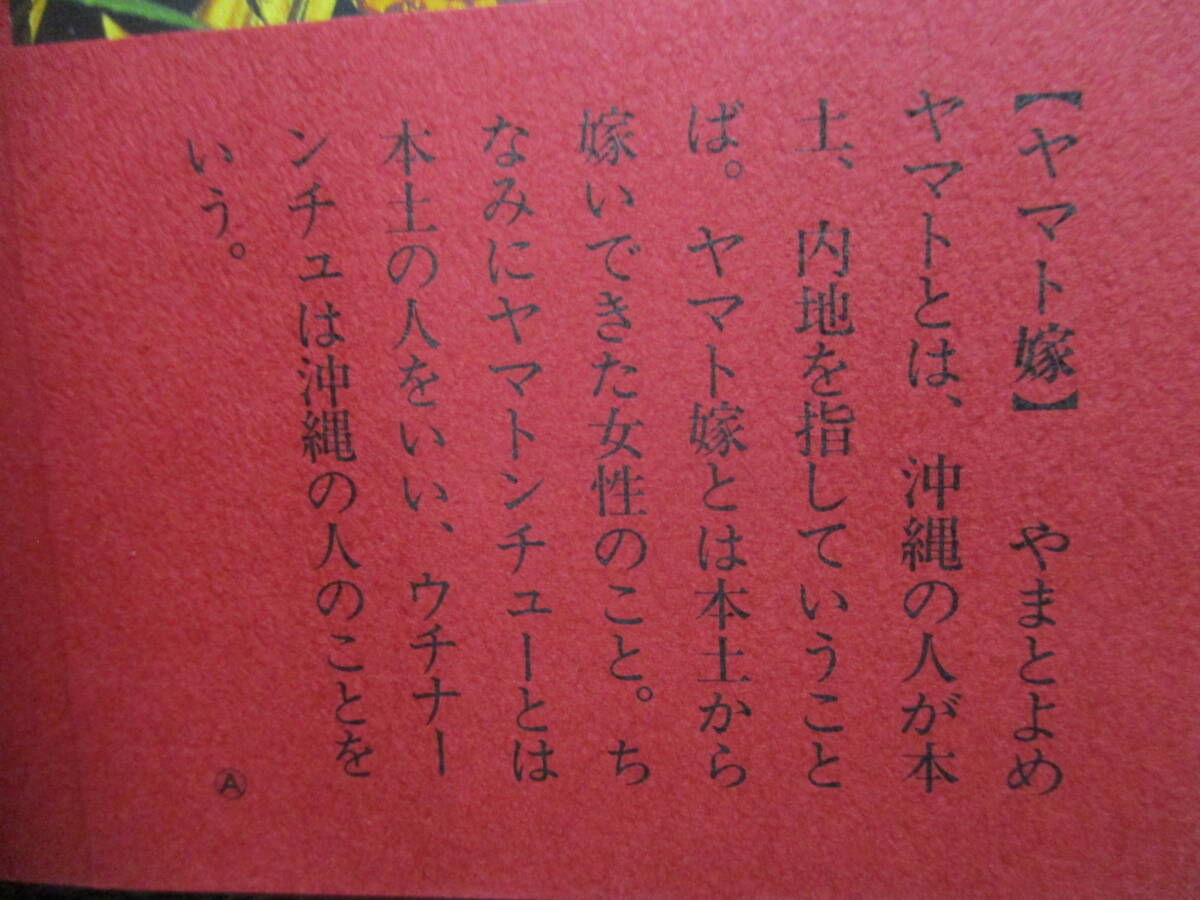 【ヤマト嫁】　やまとよめ
ヤマトとは、沖縄の人が本
土、内地を指していうこと
ば。ヤマト嫁とは本土から
嫁いできた女性のこと。ち
なみにヤマトンチューとは
本土の人をいい、ウチナー
ンチュは沖縄の人のことを
いう。
Ⓐ